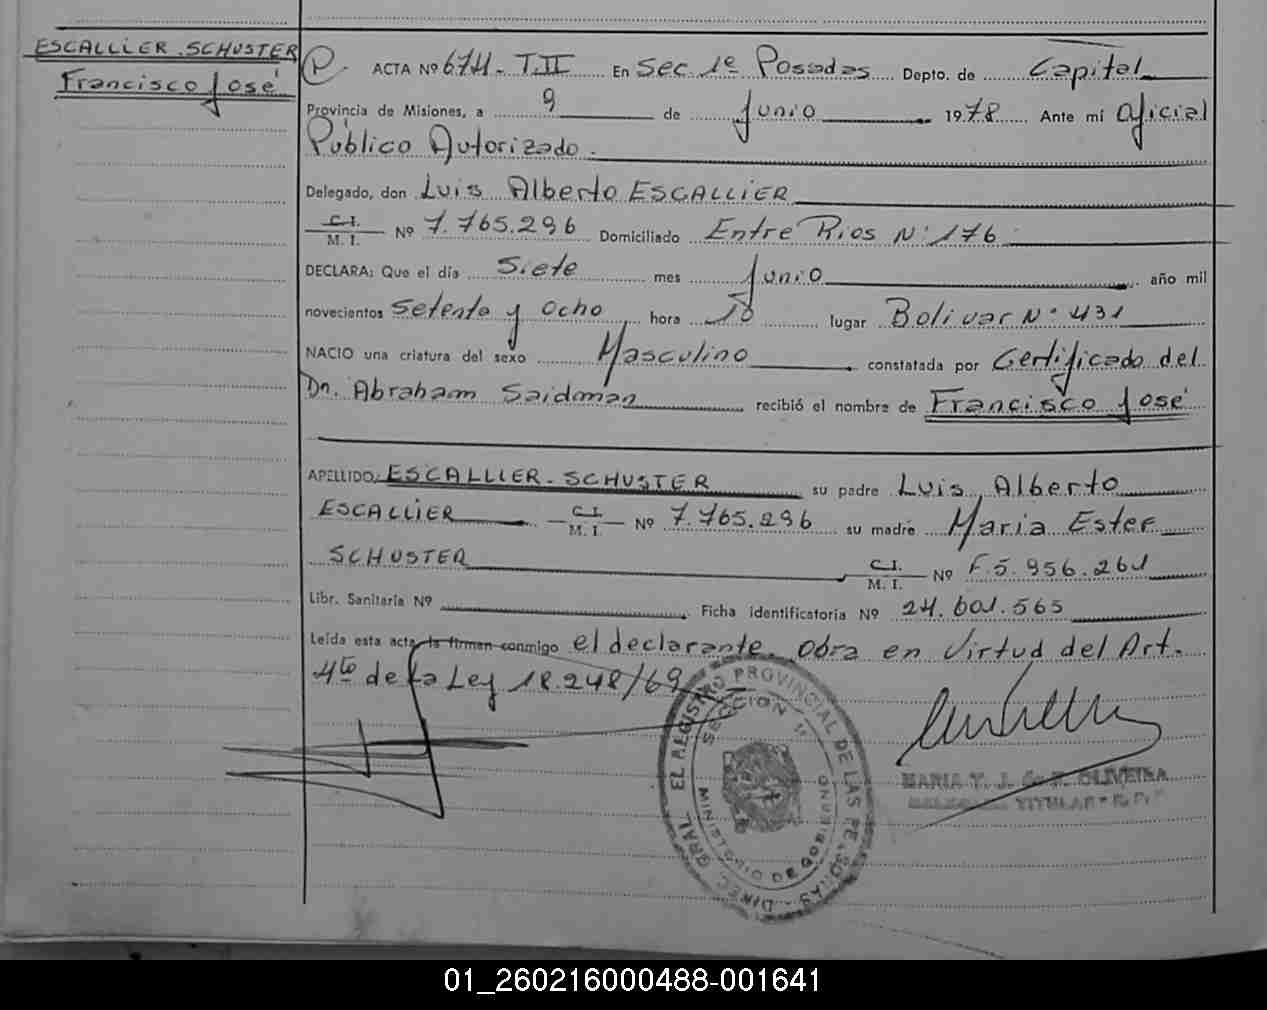 ESCALLIER SCHUSTER
Francisco José
P. ACTA Nº 674. T.II En Sec 1º Posadas Depto. de Capital
Provincia de Misiones, a 9 de Junio 1978 Ante mi Oficial
Público Autorizado.
Delegado, don Luis Alberto ESCALLIER
C.I. M.I. Nº 7.765.296 Domiciliado Entre Rios Nº 176
DECLARA: Que el día Siete mes Junio año mil
novecientos Setenta y Ocho hora 10 lugar Bolivar Nº 431
NACIO una criatura del sexo Masculino constatada por Certificado del
Dr. Abraham Saidman recibió el nombre de Francisco José
APELLIDO: ESCALLIER-SCHUSTER su padre Luis Alberto
ESCALLIER C.I. M.I. Nº 7.765.296 su madre Maria Ester
SCHUSTER C.I. M.I. Nº F.5.956.261
Libr. Sanitaria Nº Ficha identificatoria Nº 24.601.565
Leída esta acta la firman conmigo el declarante. Obra en Virtud del Art.
4to de La Ley 18.248/69
DIREC. GRAL. EL REGISTRO PROVINCIAL DE LAS PERSONAS
SECCION 1ª
MINISTERIO DE GOBIERNO
MARIA T. J. de F. OLIVEIRA
TITULAR
01_260216000488-001641